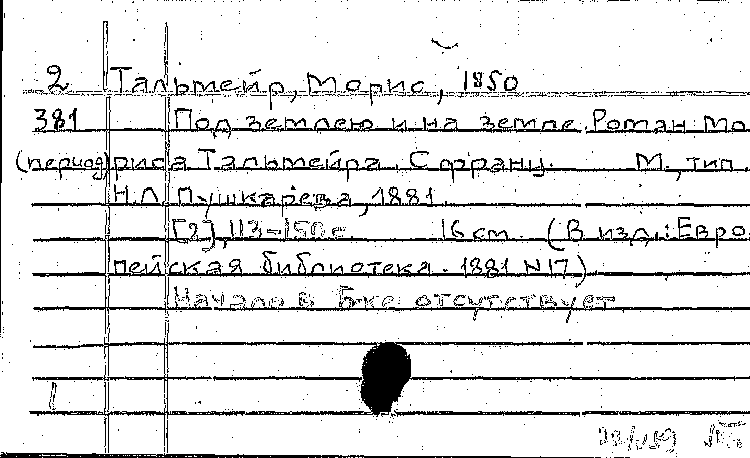 2 Тальмейр, Морис, 1850
381 Под землею и на земле. Роман Мо
(период) риса Тальмейра. С франц. М., тип.
Н.Л. Пушкарева, 1881.
[2], 113-150 с. 16 см. (В изд.: Евро
пейская библиотека. 1881 N 17)
Начало в Б-ке отсутствует